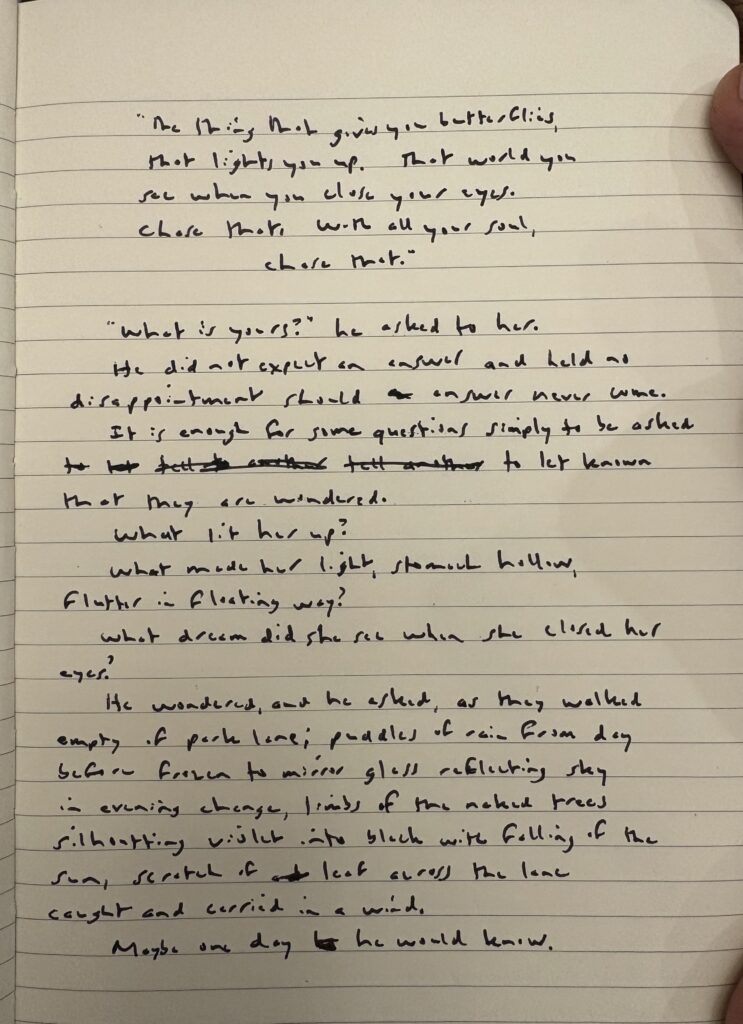 "The thing that gives you butterflies,
that lights you up. That world you
see when you close your eyes.
Chase that. With all your soul,
chase that."
"What is yours?" he asked to her.
He did not expect an answer and held no
disappointment should answer never come.
It is enough for some questions simply to be asked
to let tell another tell another to let known
that they are wondered.
What lit her up?
What made her light, stomach hollow,
flutter in floating way?
What dream did she see when she closed her
eyes?
He wondered, and he asked, as they walked
empty of park lane; puddles of rain from day
before frozen to mirror glass reflecting sky
in evening change, limbs of the naked trees
silhoutting violet into black with falling of the
sun, scratch of leaf across the lane
caught and carried in a wind.
Maybe one day he would know.